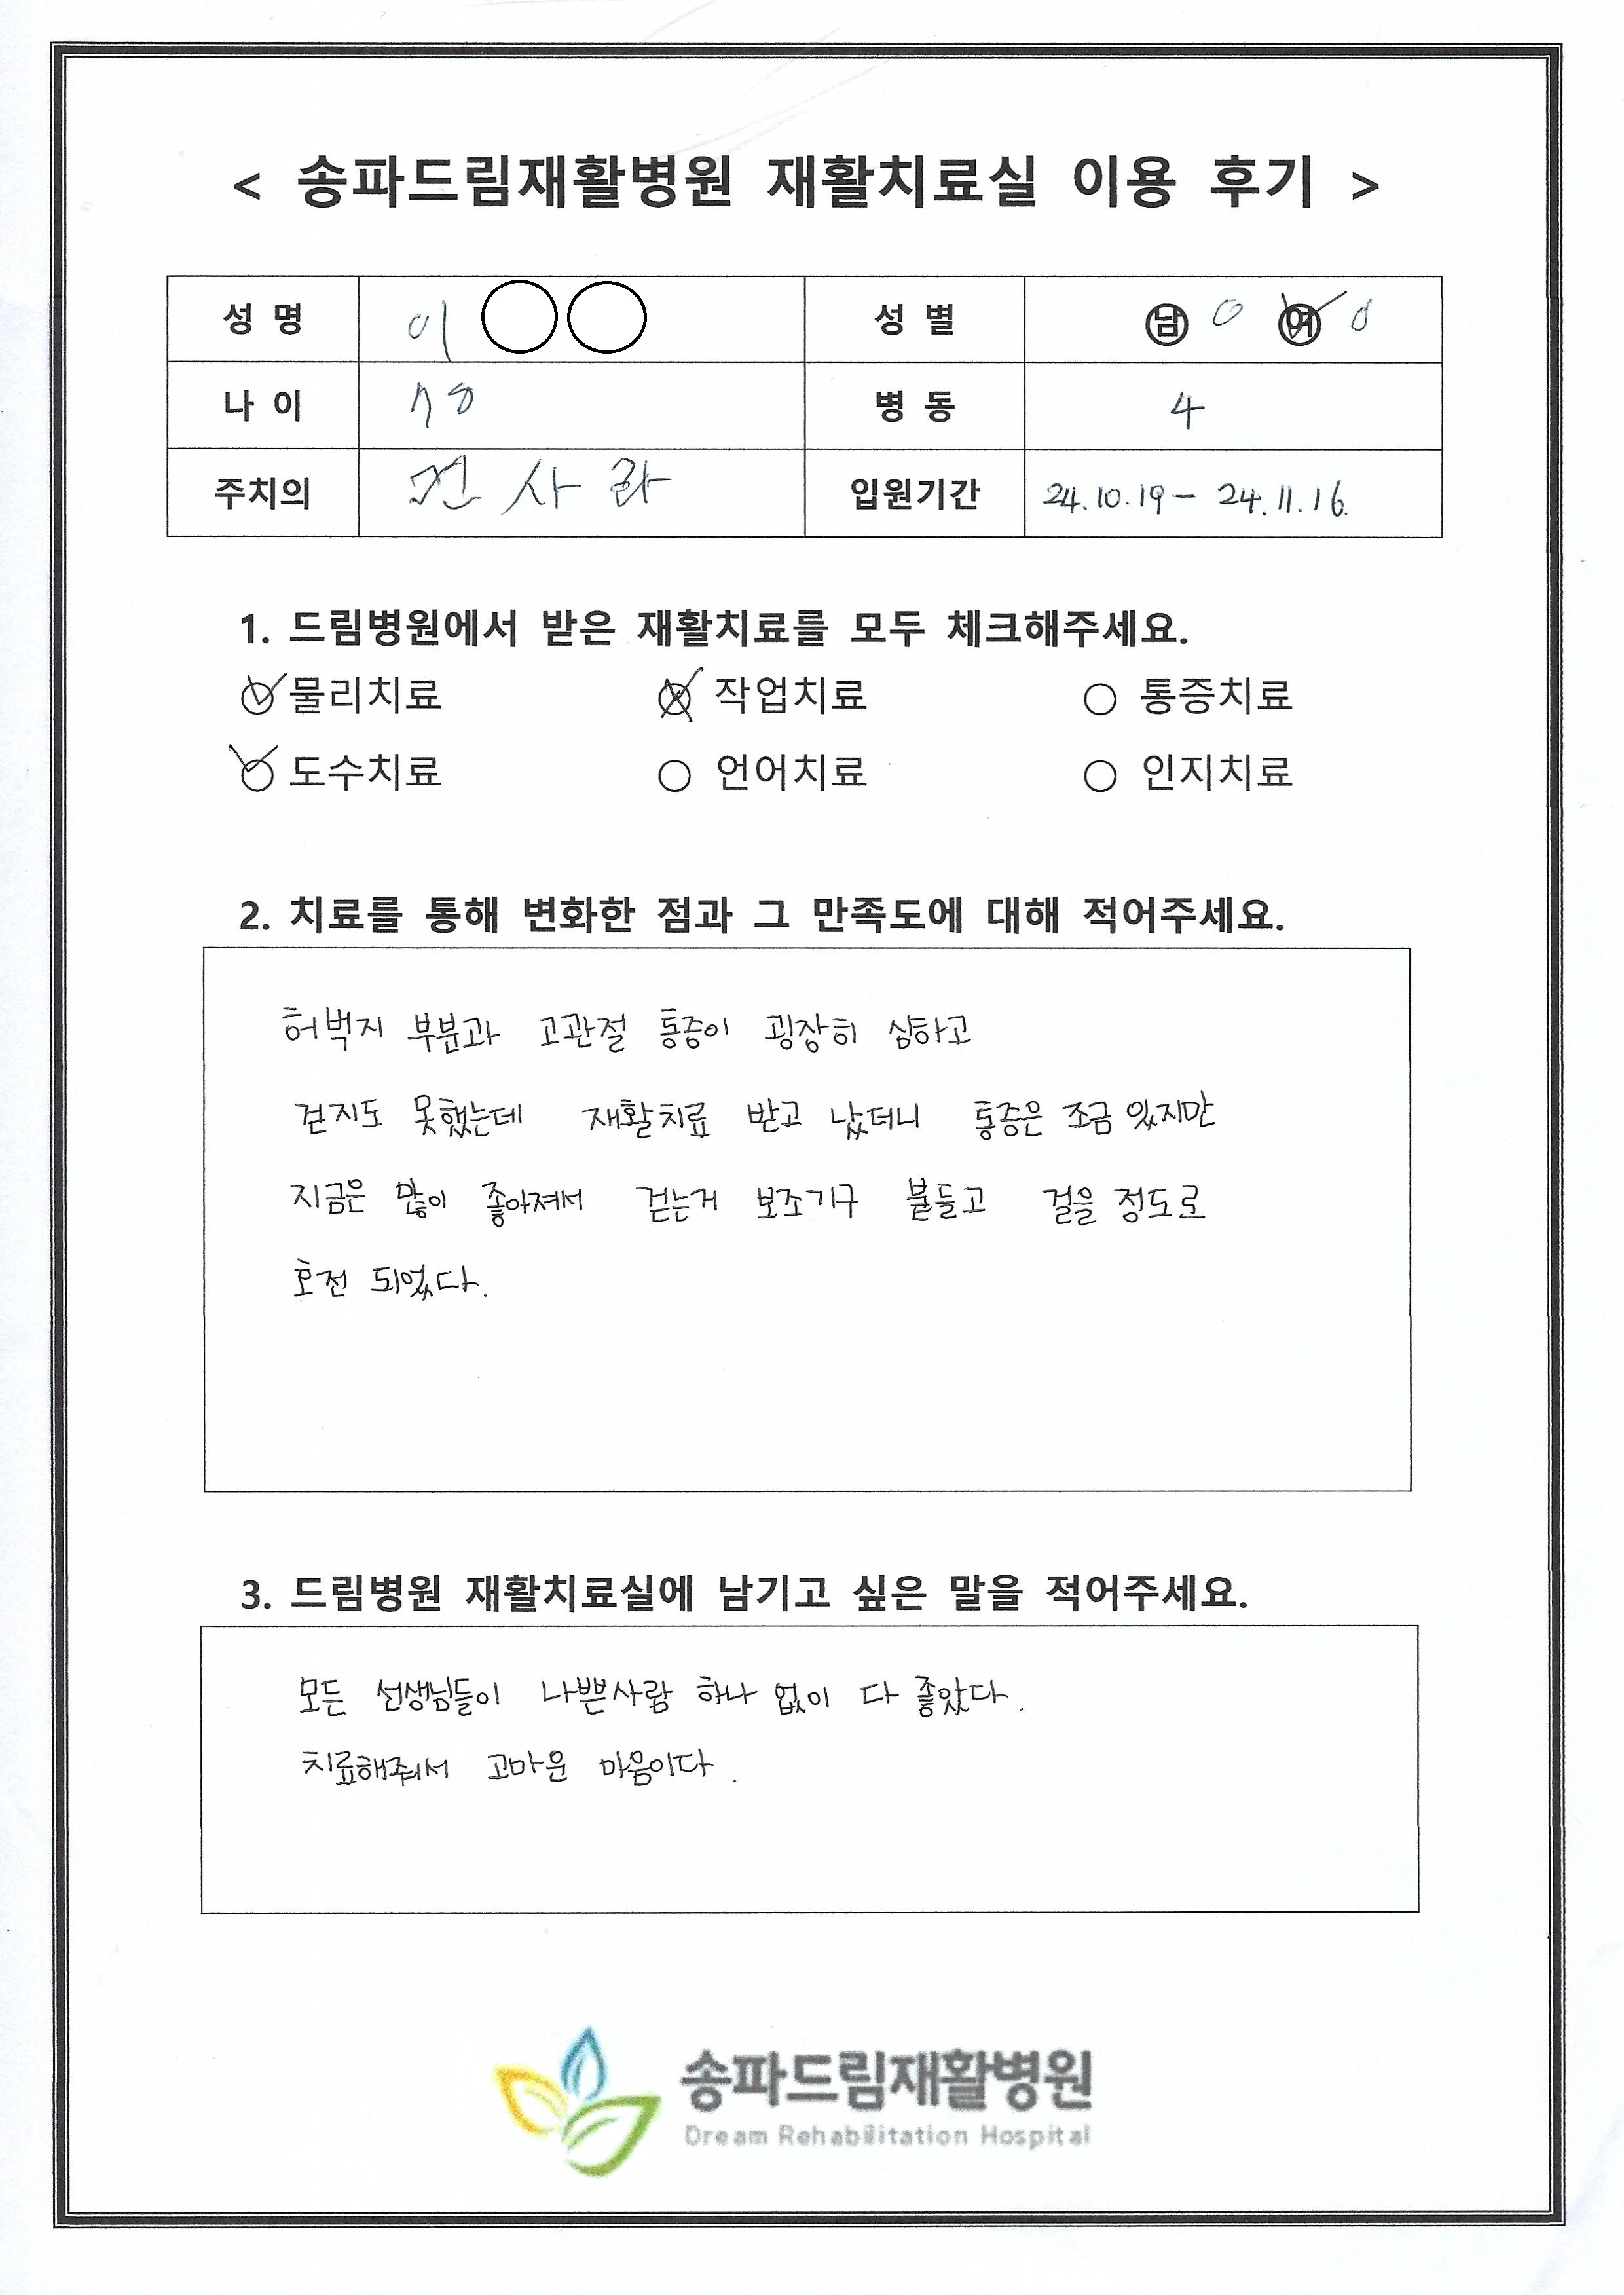 < 송파드림재활병원 재활치료실 이용 후기 >
성 명 이 ○○ 성 별 남 여
나 이 78 병 동 4
주치의 전사라 입원기간 24.10.19 - 24.11.16.
1. 드림병원에서 받은 재활치료를 모두 체크해주세요.
물리치료 작업치료 ○ 통증치료
도수치료 ○ 언어치료 ○ 인지치료
2. 치료를 통해 변화한 점과 그 만족도에 대해 적어주세요.
허벅지 부분과 고관절 통증이 굉장히 심하고
걷지도 못했는데 재활치료 받고 났더니 통증은 조금 있지만
지금은 많이 좋아져서 걷는거 보조기구 붙들고 걸을 정도로
호전 되었다.
3. 드림병원 재활치료실에 남기고 싶은 말을 적어주세요.
모든 선생님들이 나쁜사람 하나 없이 다 좋았다.
치료해줘서 고마운 마음이다.
송파드림재활병원
Dream Rehabilitation Hospital